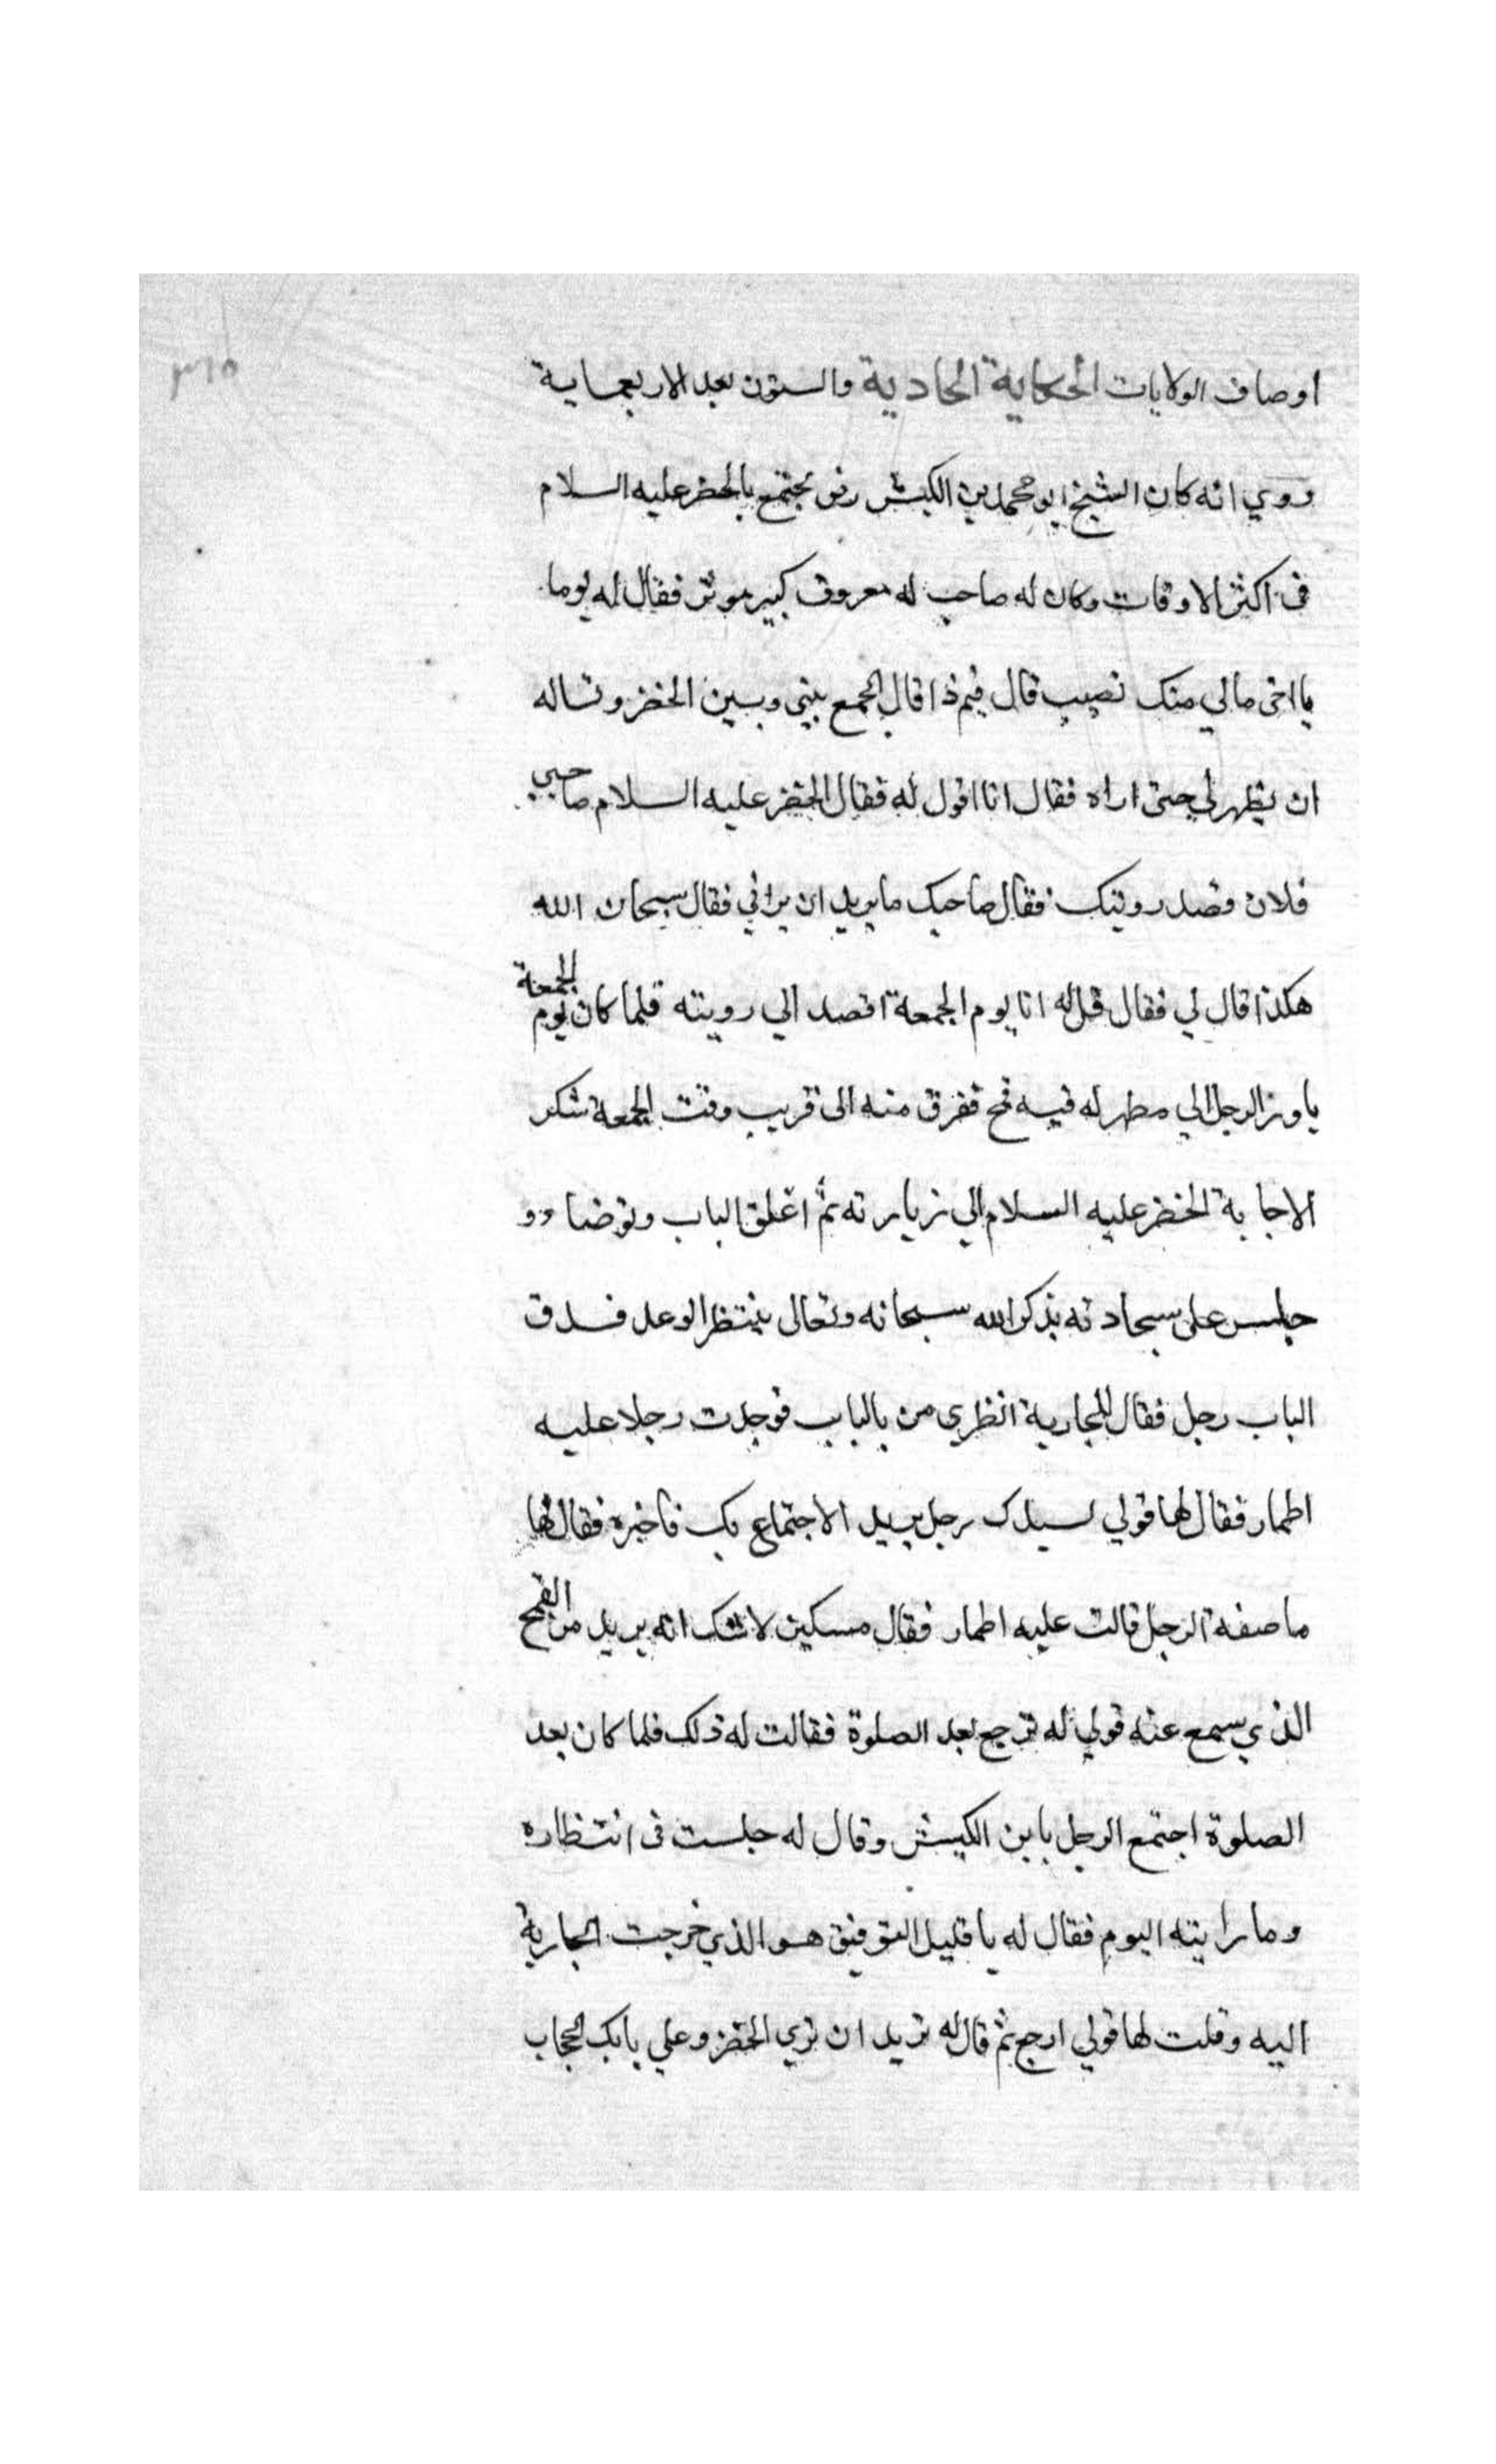 ٣١٥
اوصاف الولايات الحكاية الحادية والستون بعد الاربعماية
روي انه كان الشيخ ابو محمد بن الكبش رضى يجتمع بالخضر عليه السلام
فى اكثر الاوقات وكان له صاحب له معروف كبير موثر فقال له يوما
يا اخى مالي منك نصيب قال فيم ذا قال الجمع بينى وبين الخضر وتساله
ان يظهر لي حتى اراه فقال انا اقول له فقال للخضر عليه السلام صاحبي
فلان قصد رويتك فقال صاحبك ما يريد ان يراني فقال سبحان الله
هكذا قال لي فقال قل له انا يوم الجمعة اقصد الي رويته فلما كان يوم الجمعة
الرجل الي مطهر له فيه قمح ففرق منه الى قريب وقت الجمعة شكر
الاجابة الخضر عليه السلام الي زيارته ثم اغلق الباب وتوضا و
جلس على سجادته يذكر الله سبحانه وتعالى ينتظر الوعد فدق
الباب رجل فقال للجارية انظري من بالباب فوجدت رجلا عليه
اطمار فقال لها قولي لسيدك رجل يريد الاجتماع بك فاخبره فقال لها
ما صفة الرجل قالت عليه اطمار فقال مسكين لا شك انه يريد من القمح
الذي سمع عنه قولي له ترجع بعد الصلوة فقالت له ذلك فلما كان بعد
الصلوة اجتمع الرجل بابن الكبش وقال له جلست فى انتظاره
وما رايته اليوم فقال له يا قليل التوفيق هو الذي خرجت الجارية
اليه وقلت لها قولي ارجع ثم قال له تريد ان تري الخضر وعلي بابك الحجاب